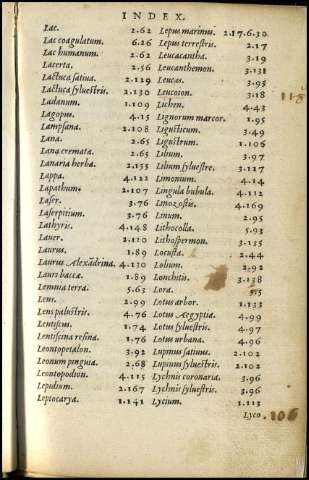 INDEX.
Lac. 2.62
Lac coagulatum. 6.26
Lac humanum. 2.62
Lacerta. 2.56
Lactuca satiua. 2.129
Lactuca syluestris. 2.130
Ladanum. 1.109
Lagopus. 4.15
Lampsana. 2.108
Lana. 2.65
Lana cremata. 2.65
Lanaria herba. 2.155
Lappa. 4.122
Lapathum. 2.107
Laser. 3.76
Laserpitium. 3.76
Lathyris. 4.148
Lauer. 2.110
Laurus. 1.89
Laurus Alexādrina. 4.130
Lauri bacca. 1.89
Lemnia terra. 5.63
Lens. 2.99
Lens palustris. 4.76
Lentiscus. 1.74
Lentiscina resina. 1.76
Leontopetalon. 3.92
Leonum pinguia. 2.68
Leontopodion. 4.115
Lepidium. 2.167
Leptocarya. 1.141
Lepus marinus. 2.17.6.30
Lepus terrestris. 2.17
Leucacantha. 3.19
Leucanthemon. 3.131
Leucas. 3.95
Leucoion. 3.18
Lichen. 4.43
Lignorum marcor. 1.95
Ligusticum. 3.49
Ligustrum. 1.106
Lilium. 3.97
Lilium syluestre. 3.117
Limonium. 4.14
Lingula bubula. 4.112
Linozostis. 4.169
Linum. 2.95
Lithocolla. 5.93
Lithospermon. 3.135
Locusta. 2.44
Lolium. 2.92
Lonchitis. 3.138
Lora. 5.5
Lotus arbor. 1.133
Lotus Aegyptia. 4.99
Lotus syluestris. 4.97
Lotus urbana. 4.96
Lupinus satiuus. 2.102
Lupinus syluestris. 2.102
Lychnis coronaria. 3.96
Lychnis syluestris. 3.96
Lycium. 1.113
Lyco
106